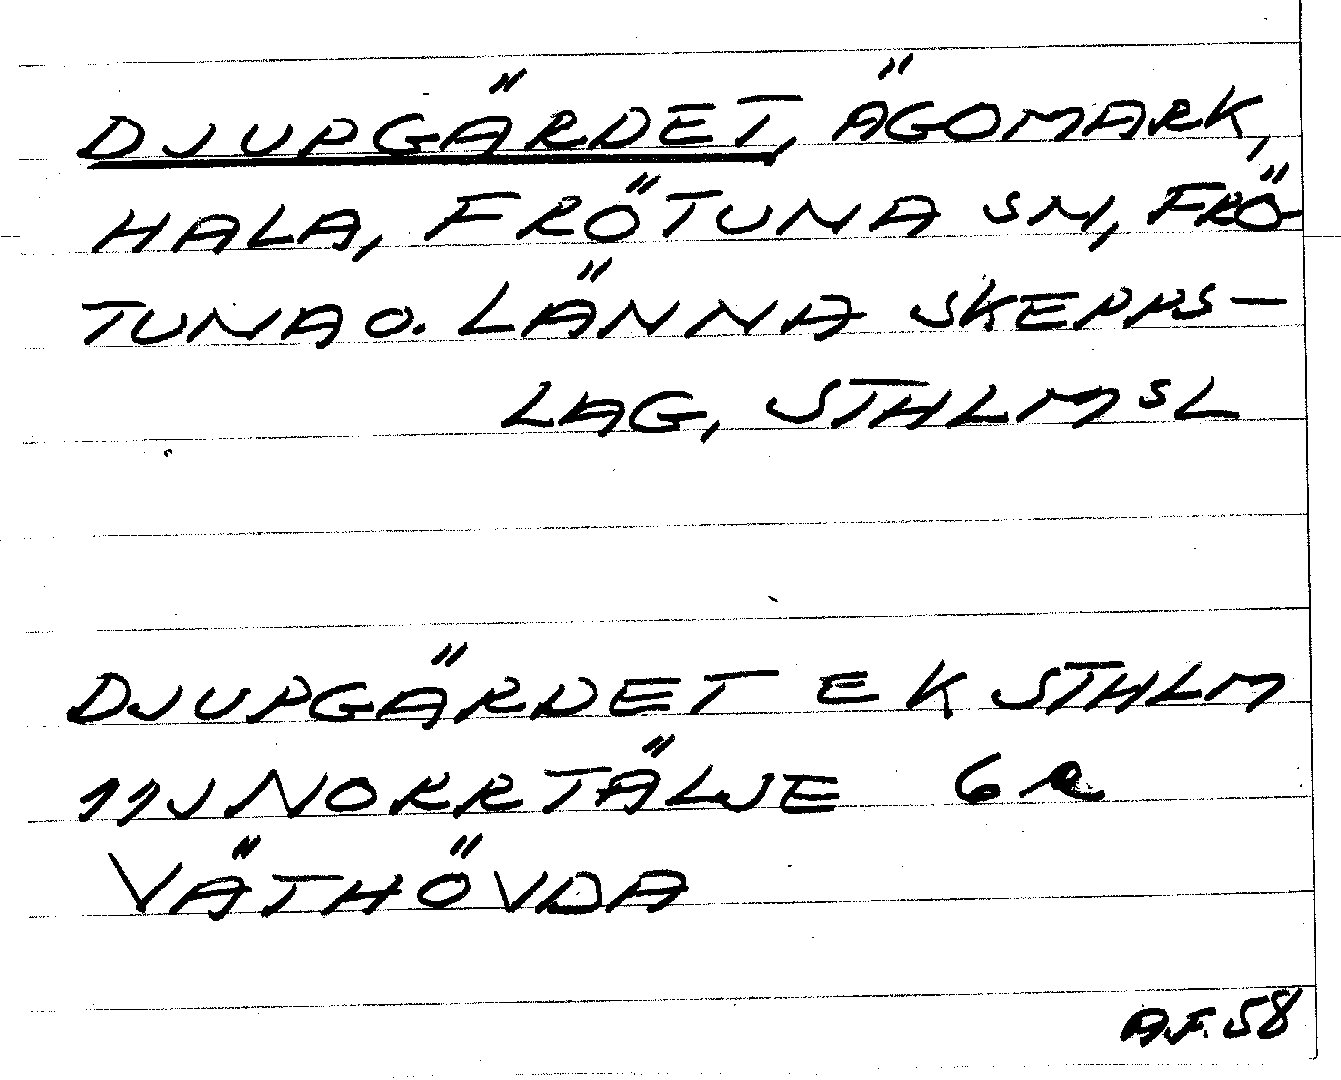 DJUPGÄRDET, ÄGOMARK,
HALA, FRÖTUNA SN, FRÖ-
TUNA O. LÄNNA SKEPPS-
LAG, STHLMS L
DJUPGÄRDET EK STHLM
11J NORRTÄLJE 6e
VÄTHÖVDA
A.F. 58